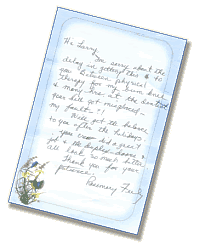 Hi Larry,
I'm sorry about the
delay in getting this to
you. Between physical
therapy for my
& many trips at the dentist
your bill got misplaced –
my fault – !
We'll get the balance
to you after the holidays
– you did a great
job & the
all look so much better.
Thank you for your
patience.
Rosemary